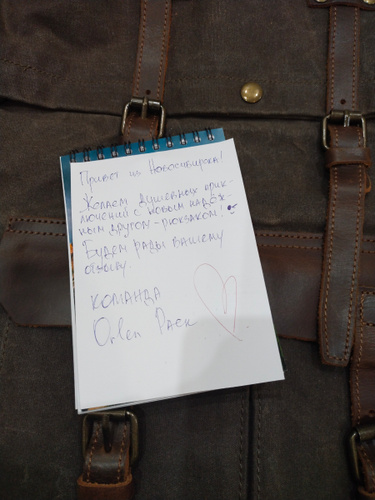 Привет из Новосибирска!
Желаем душевных прик-
лючений с новым надёж-
ным другом-рюкзаком!
Будем рады вашему
отзыву.
КОМАНДА
Orlen Pack